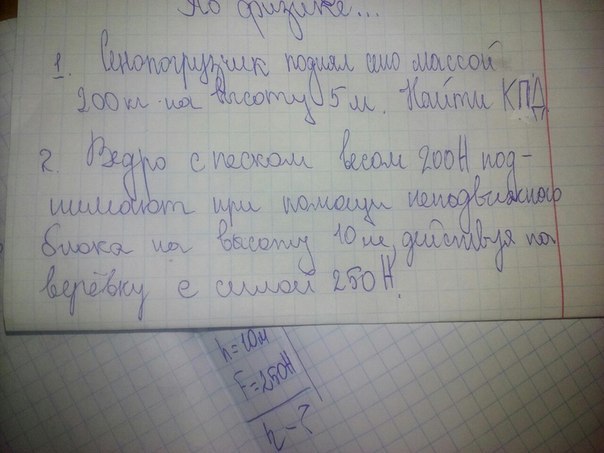 По физике...
1. Сенопогрузчик поднял сено массой
200 кг на высоту 5 м. Найти КПД
2. Ведро с песком весом 200Н под-
нимают при помощи неподвижного
блока на высоту 10 м, действуя на
верёвку с силой 250Н.
h=10м
F=250Н
η-?